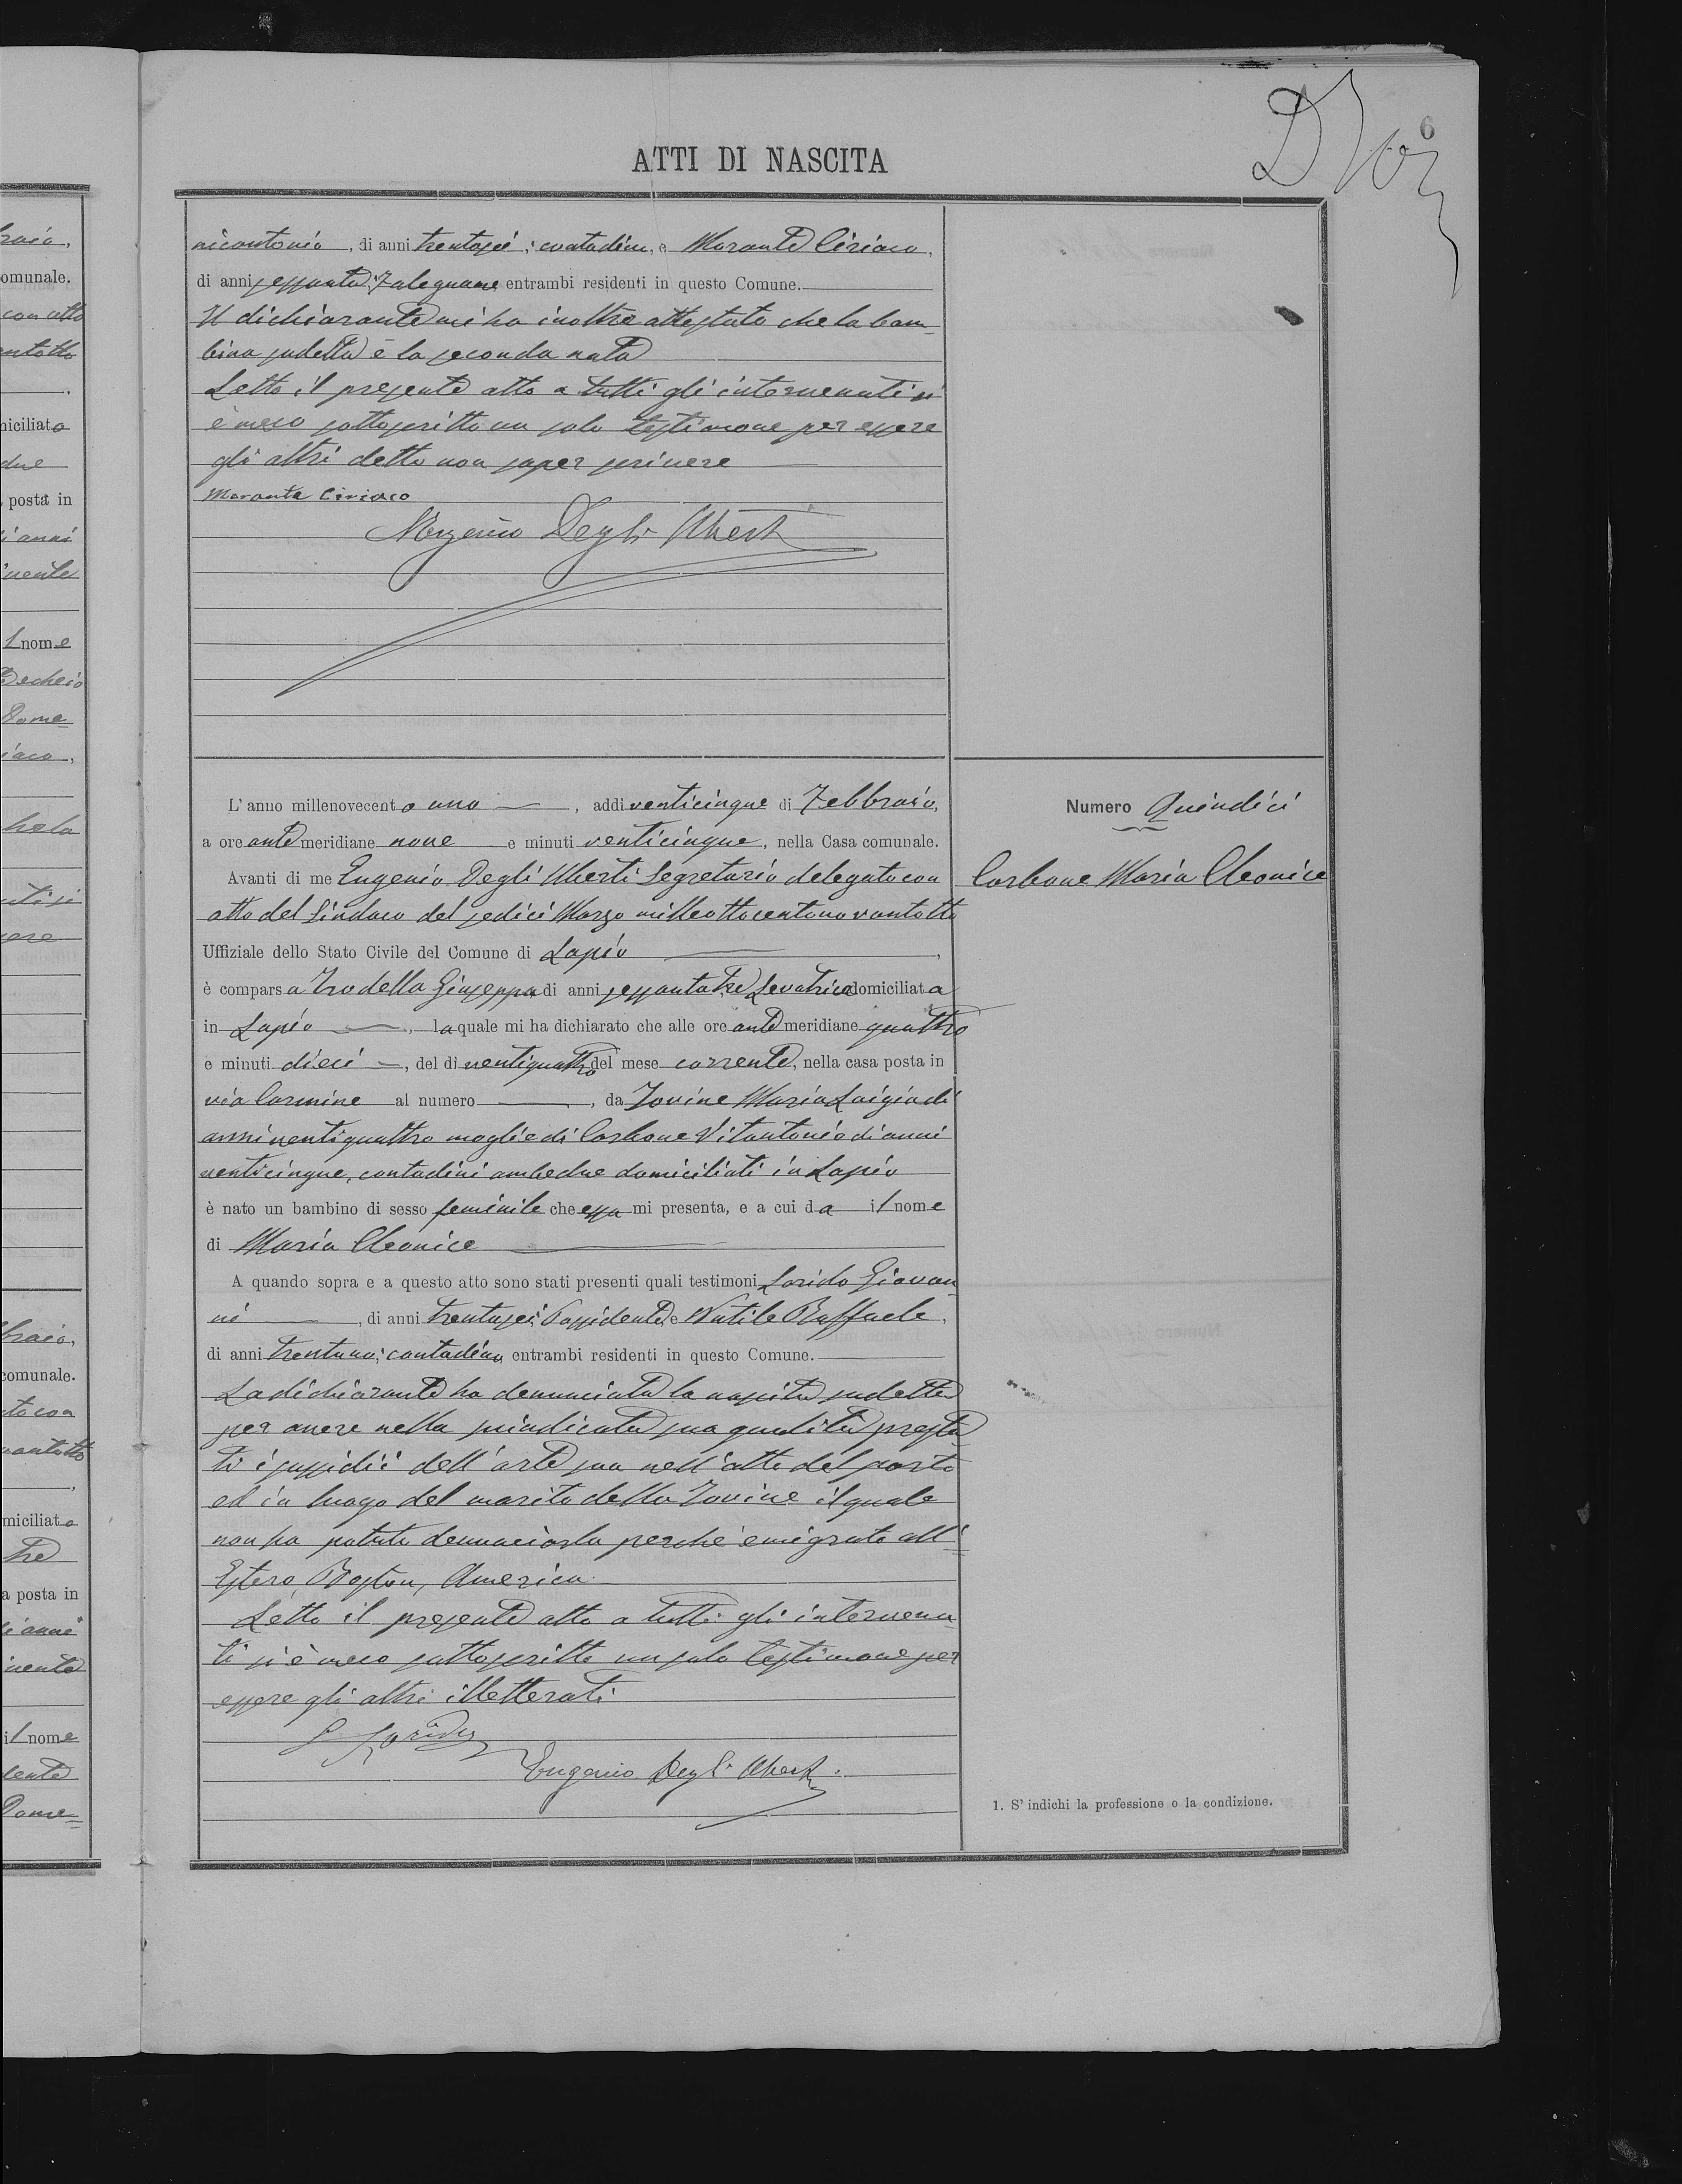 6
ATTI DI NASCITA
nicantonio, di anni trentasei, contadino, e Morante Ciriaco,
di anni sessanta, Falegname, entrambi residenti in questo Comune.
Il dichiarante mi ha inoltre attestato che la bam-
bina sudetta è la seconda nata
Letto il presente atto a tutti gli intervenuti si
è meco sottoscritto un solo testimone per essere
gli altri detto non saper scrivere
Morante Ciriaco
Eugenio Degli Uberti
L'anno millenovecento uno, addi venticinque di Febbraio,
a ore antemeridiane nove e minuti venticinque, nella Casa comunale.
Numero Quindici
Avanti di me Eugenio Degli Uberti Segretario delegato con
Carbone Maria Cleonice
atto del Sindaco del sedici Marzo milleottocentonovantotto
Uffiziale dello Stato Civile del Comune di Lapio,
è comparsa Trodella Giuseppa di anni sessantatre, Levatrice domiciliata
in Lapio, la quale mi ha dichiarato che alle ore antemeridiane quattro
e minuti dieci, del dì ventiquattro del mese corrente, nella casa posta in
via Carmine al numero, da Iovine Maria Luigia di
anni ventiquattro moglie di Carbone Vitantonio di anni
venticinque, contadini ambedue domiciliati in Lapio
è nato un bambino di sesso feminile che essa mi presenta, e a cui da il nome
di Maria Cleonice
A quando sopra e a questo atto sono stati presenti quali testimoni Lorido Giovan
ni, di anni trentasei, Possidente, e Nutile Raffaele,
di anni trentuno, contadino, entrambi residenti in questo Comune.
La dichiarante ha denunciata la nascita sudetta
per avere nella suindicata sua qualità presta
ti i sussidii dell'arte sua nell'atto del parto
ed in luogo del marito della Iovine il quale
non ha potuto denunciarla perchè emigrato all'
Estero, Boston, America.
Letto il presente atto a tutti gli intervenu
ti si è meco sottoscritto un solo testimone per
essere gli altri illetterati
G. Lorido
Eugenio Degli Uberti.
1. S'indichi la professione o la condizione.